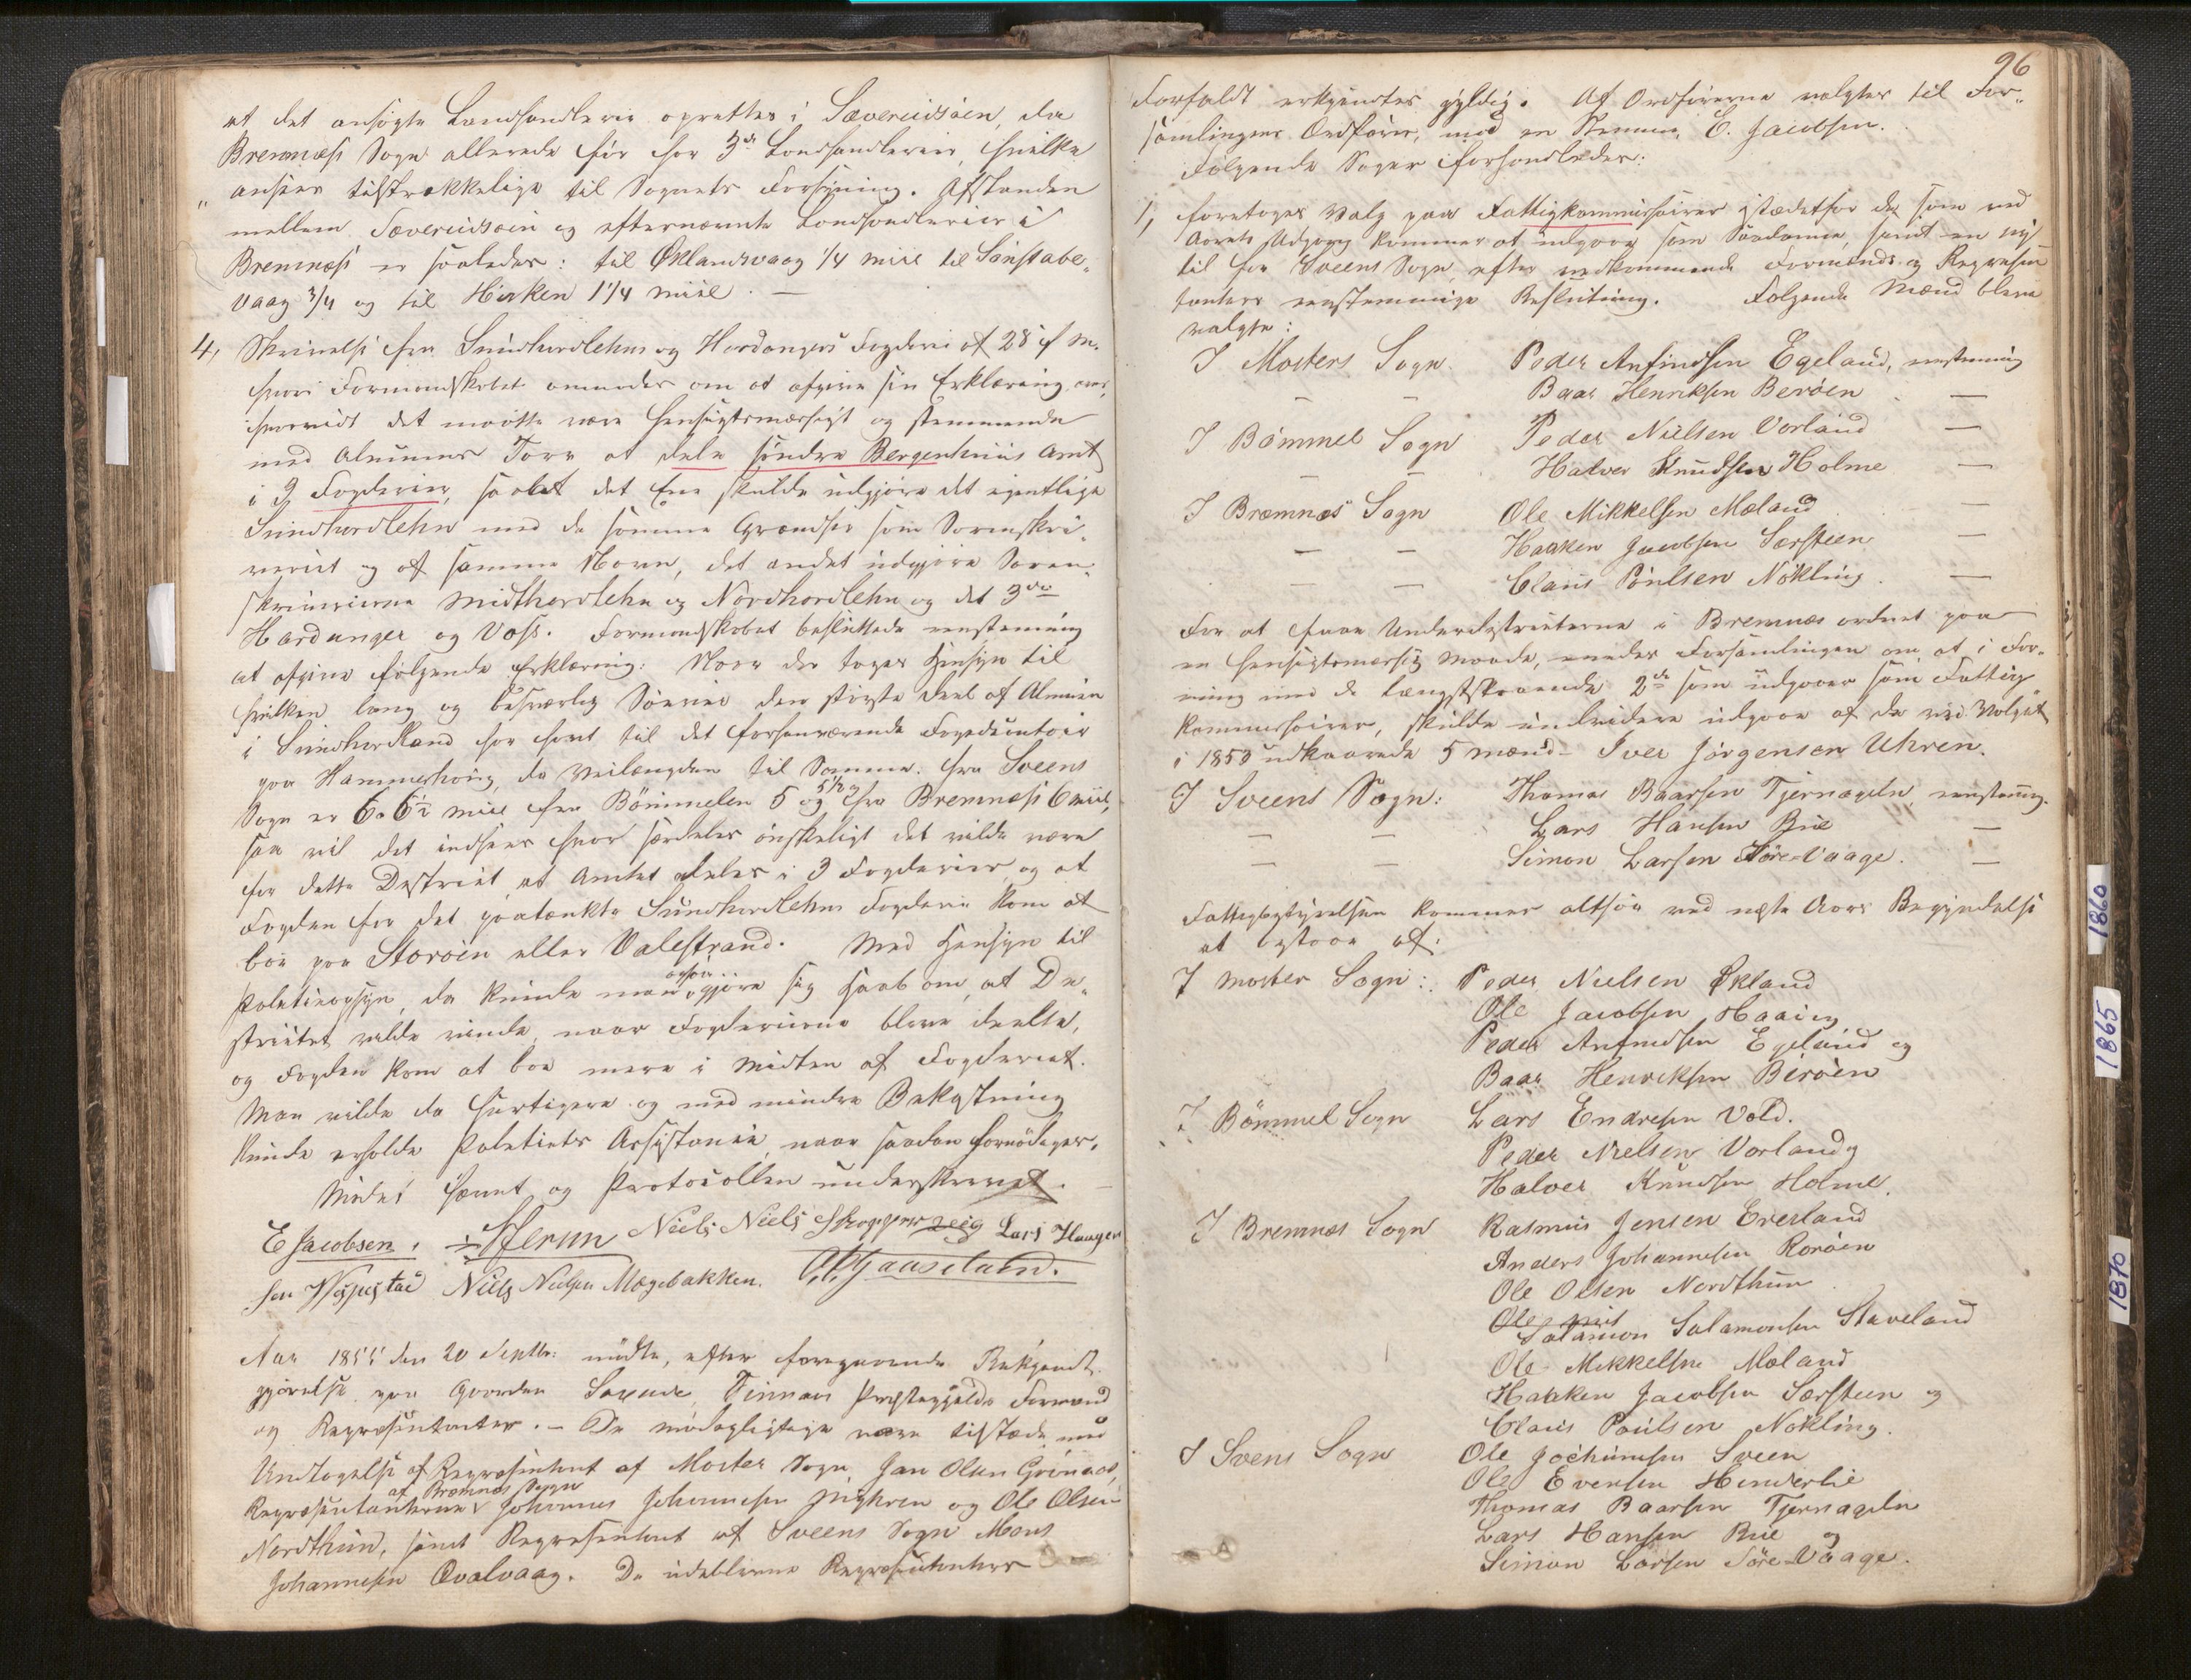 at det ansøgte Landhandlerie oprettes i Sævereidsøen, da
Bremnæs Sogn allerede før har 3de Landhandlerier, hvilke
ansees tilstrækkelige til Sognets Forsyning. Afstanden
mellem Sævereidsøen og efternævnte Landhandlerier i
Bremnæs er saaledes: til Øklandsvaag 1/4 Miil til Langstabe-
vaag 3/4 og til Hisken 1 1/4 Miil. —
4, Skrivelse fra Sundhordlehns og Hardangers Fogderi af 28 f. M.
hvori Formandskabet anmodes om at afgive sin Erklæring, om
hvorvidt det maatte være hensigtsmæssigt og stemmende
med Almuens Tarv at dele søndre Bergenhuus Amt
i 3 Fogderier, saa at det Ene skulde udgjøre det egentlige
Sundhordlehn med de samme Grændser som Sorenskri-
veriet og af samme Navn, det andet udgjøre Soren-
skriverierne Midthordlehn og Nordhordlehn og det 3die
Hardanger og Voss. Formandskabet besluttede eenstemmig
at afgive følgende Erklæring: Naar der tages Hensyn til
hvilken lang og besværlig Søevei den største Deel af Almuen
i Sundhordland har havt til det forhenværende Fogedcontoir
paa Hammerhoug, da Veilængden til Samme fra Sveens
Sogn er 6 a 6½ Miil fra Bømmelen 5 og 5½ og fra Bremnæs 6 Miil,
saa vil det indsees hvor særdeles ønskeligt det vilde være
for dette District at Amtet deles i 3 Fogderier, og at
Fogden for det paatænkte Sundhordlehns Fogderie kom at
boe paa Storøen eller Valestrand. Med Hensyn til
Politieopsyn, da kunde man ogsaa gjøre sig Haab om, at Di-
strictet vilde vinde, naar Fogderierne bleve deelte,
og Fogden kom at boe mere i Midten af Fogderiet.
Man vilde da hurtigere og med mindre Bekostning
kunde erholde Politiets Assistance, naar saadan fornødiges.
Mødet hævet og Protocollen underskrevet. —
E Jacobsen. Niels Niels Lars Haagen
sen Niels Nielsen Mægebakken.
Aar 1855 den 20 Septbr: mødte, efter foregaaende Bekjendt-
gjørelse paa Gaarden Finnaas Præstegjælds Formænd
og Repræsentanter. — De mødepligtige vare tilstæde med
Undtagelse af Repræsentant af Moster Sogn, Jan Olsen Grønaas,
Repræsentanterne af Bremnæs Sogn Johannes Johannesen og Ole Olsen
Nordthun, samt Repræsentant af Sveens Sogn Mons
Johannesen Qvalvaag. De udeblevne Repræsentanters
96
Forfald erkjendtes gyldig. Af Ordførerne valgtes til For-
samlingens Ordfører, med en Stemme, E. Jacobsen.
Følgende Sager forhandledes:
1, foretoges Valg paa Fattigkommissairer istedetfor de som ved
Aarets Udgang kommer at udgaae som Saadanne, samt en ny
til for Sveens Sogn, efter vedkommende Formænds og Repræsen-
tanters eenstemmige Beslutning. Følgende Mænd bleve
valgte:
I Mosters Sogn. Peder Anfindsen Egeland, eenstemmig
— — Baar Henriksen Berøen —
I Bømmel Sogn Peder Nielsen Vorland —
— — Halver Knudsen Holme —
I Bræmnæs Sogn Ole Mikkelsen Mæland —
— — Haaken Jacobsen Særsteen —
— — Claus Poulsen Nøkling. —
For at faae Underdistricterne i Bremnæs ordnet paa
en hensigtsmæssig Maade, enedes Forsamlingen om at i For-
ening med de længststaaende 2de som udgaaer som Fattig-
kommissairer, skulde endvidere udgaae af de ved Valget
i 1853 udkaarede 5 Mænd – Iver Jörgensen Uhren.
I Sveens Sogn: Thomas Baarsen Tjernageln, eenstemmig.
— — Lars Hansen Bue —
— — Simon Larsen Töre-Vaage. —
Fattigbestyrelsen kommer altsaa ved næste Aars Begyndelse
at bestaae af:
I Moster Sogn: Peder Nielsen Økland
Ole Jacobsen Haaeig
Peder Anfindsen Egeland og
Baar Henriksen Berøen
I Bömmel Sogn Lars Endresen Vold.
Peder Nielsen Vorland og
Halver Knudsen Holme.
I Bremnæs Sogn Rasmus Jensen Eresland
Anders Johannesen Rorøen
Ole Olsen Nordthun
Salamon Salamonsen Staveland
Ole Mikkelsen Mæland
Haaken Jacobsen Særsteen og
Claus Poulsen Nökling.
I Sveens Sogn Ole Jochumsen Sveen
Ole Evensen Hinderlie
Thomas Baarsen Tjernageln
Lars Hansen Bue og
Simon Larsen Töre-Vaage.
1860
1865
1870